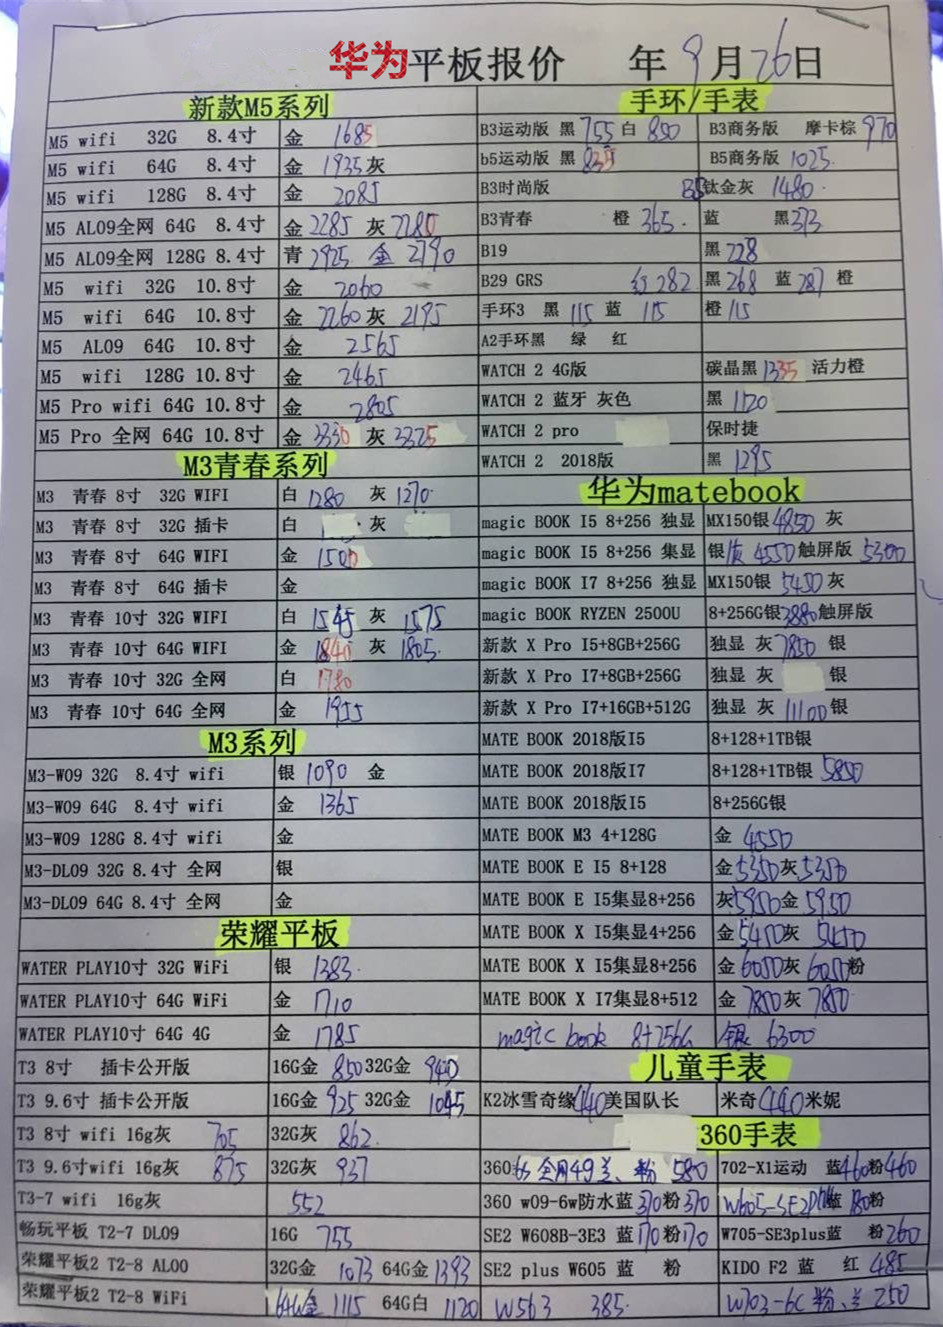 华为平板报价 年 9月26日
新款M5系列
M5 wifi 32G 8.4寸 金 1685
M5 wifi 64G 8.4寸 金 1935 灰
M5 wifi 128G 8.4寸 金 2085
M5 AL09全网 64G 8.4寸 金 2285 灰 2280
M5 AL09全网 128G 8.4寸 青 2925 金 2790
M5 wifi 32G 10.8寸 金 2060
M5 wifi 64G 10.8寸 金 2260 灰 2195
M5 AL09 64G 10.8寸 金 2565
M5 wifi 128G 10.8寸 金 2465
M5 Pro wifi 64G 10.8寸 金 2805
M5 Pro 全网 64G 10.8寸 金 3330 灰 3325
M3青春系列
M3 青春 8寸 32G WIFI 白 1280 灰 1270
M3 青春 8寸 32G 插卡 白 灰
M3 青春 8寸 64G WIFI 金 1500
M3 青春 8寸 64G 插卡 金
M3 青春 10寸 32G WIFI 白 1545 灰 1575
M3 青春 10寸 64G WIFI 金 1840 灰 1805
M3 青春 10寸 32G 全网 白 1780
M3 青春 10寸 64G 全网 金 1955
M3系列
M3-W09 32G 8.4寸 wifi 银 1090 金
M3-W09 64G 8.4寸 wifi 金 1365
M3-W09 128G 8.4寸 wifi 金
M3-DL09 32G 8.4寸 全网 银
M3-DL09 64G 8.4寸 全网 金
荣耀平板
WATER PLAY10寸 32G WiFi 银 1383
WATER PLAY10寸 64G WiFi 金 1710
WATER PLAY10寸 64G 4G 金 1785
T3 8寸 插卡公开版 16G金 850 32G金 940
T3 9.6寸 插卡公开版 16G金 925 32G金 1045
T3 8寸 wifi 16g灰 705 32G灰 862
T3 9.6寸wifi 16g灰 875 32G灰 937
T3-7 wifi 16g灰 552
畅玩平板 T2-7 DL09 16G 755
荣耀平板2 T2-8 AL00 32G金 1073 64G金 1393
荣耀平板2 T2-8 WiFi 64G金 1115 64G白 1120
手环/手表
B3运动版 黑 755 白 850 B3商务版 摩卡棕 970
b5运动版 黑 835 B5商务版 1025
B3时尚版 B5 钛金灰 1480
B3青春 橙 365 蓝 黑 373
B19 黑 228
B29 GRS 红 282 黑 268 蓝 287 橙
手环3 黑 115 蓝 115 橙 115
A2手环黑 绿 红
WATCH 2 4G版 碳晶黑 1335 活力橙
WATCH 2 蓝牙 灰色 黑 1120
WATCH 2 pro 保时捷
WATCH 2 2018版 黑 1295
华为matebook
magic BOOK I5 8+256 独显 MX150银 4850 灰
magic BOOK I5 8+256 集显 银 4550 触屏版 5300
magic BOOK I7 8+256 独显 MX150银 5450 灰
magic BOOK RYZEN 2500U 8+256G银 3880 触屏版
新款 X Pro I5+8GB+256G 独显 灰 7850 银
新款 X Pro I7+8GB+256G 独显 灰 银
新款 X Pro I7+16GB+512G 独显 灰 11100 银
MATE BOOK 2018版I5 8+128+1TB银
MATE BOOK 2018版I7 8+128+1TB银 5850
MATE BOOK 2018版I5 8+256G银
MATE BOOK M3 4+128G 金 4550
MATE BOOK E I5 8+128 金 5350 灰 5350
MATE BOOK E I5集显8+256 灰 5950 金 5950
MATE BOOK X I5集显4+256 金 5450 灰 5450
MATE BOOK X I5集显8+256 金 6050 灰 6050 粉
MATE BOOK X I7集显8+512 金 7850 灰 7850
magic book 8+256G 银 6300
儿童手表
K2冰雪奇缘 440 美国队长 米奇 440 米妮
360手表
360 粉 580 702-X1运动 蓝 460 粉 460
360 w09-6w防水蓝 370 粉 370 W605-SE2 蓝 180 粉
SE2 W608B-3E3 蓝 170 粉 170 W705-SE3plus蓝 粉 260
SE2 plus W605 蓝 粉 KIDO F2 蓝 红 485
W563 385 W703-6C 粉、兰 250